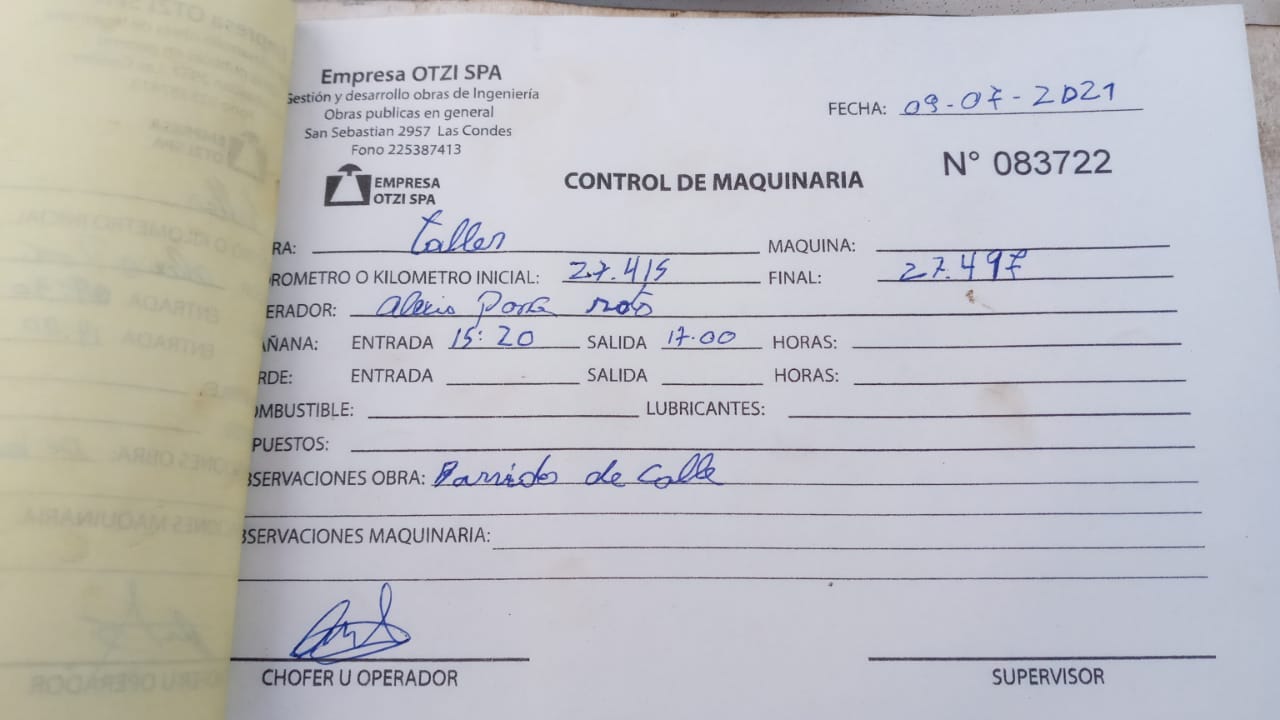 Empresa OTZI SPA
Gestión y desarrollo obras de Ingeniería
Obras publicas en general
San Sebastian 2957 Las Condes
Fono 225387413
EMPRESA
OTZI SPA
FECHA: 09-07-2021
N° 083722
CONTROL DE MAQUINARIA
RA: Taller MAQUINA:
ROMETRO O KILOMETRO INICIAL: 27.415 FINAL: 27.497
ERADOR: Alexis
AÑANA: ENTRADA 15:20 SALIDA 17.00 HORAS:
RDE: ENTRADA SALIDA HORAS:
OMBUSTIBLE: LUBRICANTES:
PUESTOS:
BSERVACIONES OBRA: Barrido de Calle
BSERVACIONES MAQUINARIA:
CHOFER U OPERADOR SUPERVISOR